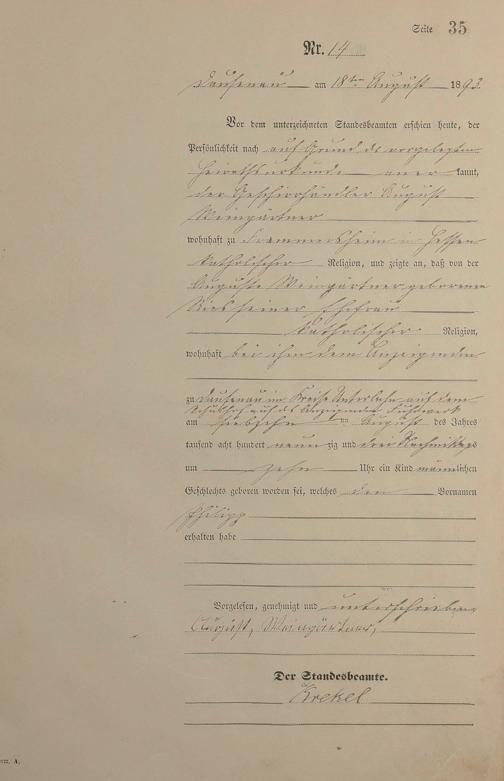 Seite 35
Nr. 14
Dausenau am 18ten August 1893.
Vor dem unterzeichneten Standesbeamten erschien heute, der
Persönlichkeit nach auf Grund der vorgelegten
Heirathsurkunde aner kannt,
der Geschirrhändler August
Weingärtner
wohnhaft zu Frammersheim in Hessen
katholischer Religion, und zeigte an, daß von der
Auguste Weingärtner geborenen
seiner Ehefrau
katholischer Religion,
wohnhaft bei ihm dem Anzeigenden
zu Dausenau im Kreise Unterlahn auf dem
des Anzeigenden Fuhrwerk
am siebzehn ten August des Jahres
tausend acht hundert neun zig und drei Nachmittags
um zehn Uhr ein Kind männlichen
Geschlechts geboren worden sei, welches den Vornamen
Philipp
erhalten habe
Vorgelesen, genehmigt und unterschrieben
August, Weingärtner,
Der Standesbeamte.
Krekel